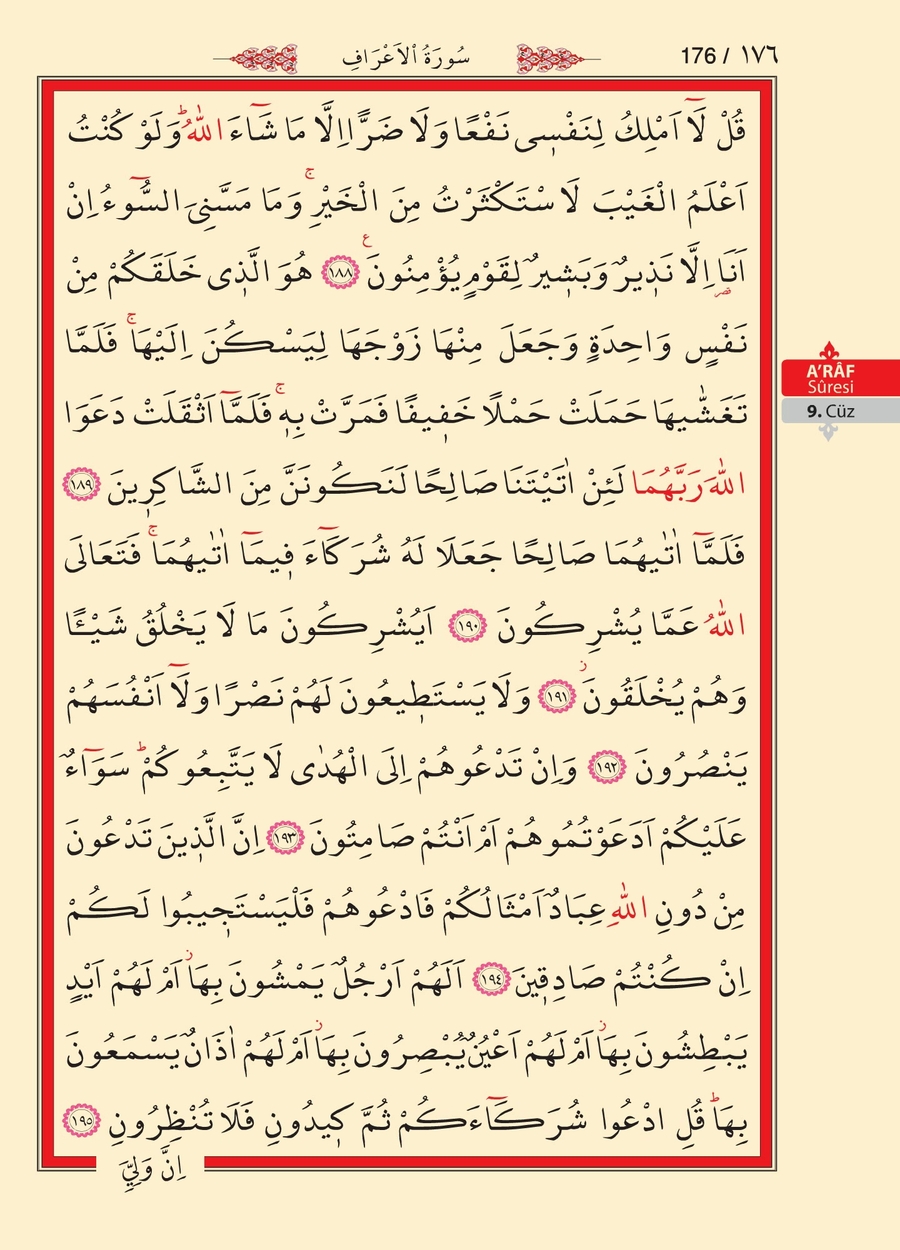 176 / ١٧٦
سُورَةُ الْاَعْرَافِ
قُلْ لَٓا اَمْلِكُ لِنَفْسٖى نَفْعًا وَلَا ضَرًّا اِلَّا مَا شَٓاءَ اللّٰهُؕ وَلَوْ كُنْتُ
اَعْلَمُ الْغَيْبَ لَاسْتَكْثَرْتُ مِنَ الْخَيْرِۚ وَمَا مَسَّنِىَ السُّٓوءُ اِنْ
اَنَا۬ اِلَّا نَذٖيرٌ وَبَشٖيرٌ لِقَوْمٍ يُؤْمِنُونَ ﴿١٨٨﴾ هُوَ الَّذٖى خَلَقَكُمْ مِنْ
نَفْسٍ وَاحِدَةٍ وَجَعَلَ مِنْهَا زَوْجَهَا لِيَسْكُنَ اِلَيْهَاۚ فَلَمَّا
تَغَشّٰيهَا حَمَلَتْ حَمْلًا خَفٖيفًا فَمَرَّتْ بِهٖۚ فَلَمَّٓا اَثْقَلَتْ دَعَوَا
اللّٰهَ رَبَّهُمَا لَئِنْ اٰتَيْتَنَا صَالِحًا لَنَكُونَنَّ مِنَ الشَّاكِرٖينَ ﴿١٨٩﴾
فَلَمَّٓا اٰتٰيهُمَا صَالِحًا جَعَلَا لَهُ شُرَكَٓاءَ فٖيمَٓا اٰتٰيهُمَاۚ فَتَعَالَى
اللّٰهُ عَمَّا يُشْرِكُونَ ﴿١٩٠﴾ اَيُشْرِكُونَ مَا لَا يَخْلُقُ شَيْـًٔا
وَهُمْ يُخْلَقُونَؗ ﴿١٩١﴾ وَلَا يَسْتَطٖيعُونَ لَهُمْ نَصْرًا وَلَٓا اَنْفُسَهُمْ
يَنْصُرُونَ ﴿١٩٢﴾ وَاِنْ تَدْعُوهُمْ اِلَى الْهُدٰى لَا يَتَّبِعُوكُمْؕ سَوَٓاءٌ
عَلَيْكُمْ اَدَعَوْتُمُوهُمْ اَمْ اَنْتُمْ صَامِتُونَ ﴿١٩٣﴾ اِنَّ الَّذٖينَ تَدْعُونَ
مِنْ دُونِ اللّٰهِ عِبَادٌ اَمْثَالُكُمْ فَادْعُوهُمْ فَلْيَسْتَجٖيبُوا لَكُمْ
اِنْ كُنْتُمْ صَادِقٖينَ ﴿١٩٤﴾ اَلَهُمْ اَرْجُلٌ يَمْشُونَ بِهَاؗ اَمْ لَهُمْ اَيْدٍ
يَبْطِشُونَ بِهَاؗ اَمْ لَهُمْ اَعْيُنٌ يُبْصِرُونَ بِهَاؗ اَمْ لَهُمْ اٰذَانٌ يَسْمَعُونَ
بِهَاؕ قُلِ ادْعُوا شُرَكَٓاءَكُمْ ثُمَّ كٖيدُونِ فَلَا تُنْظِرُونِ ﴿١٩٥﴾
اِنَّ وَلِيِّىَ
A'RÂF
Sûresi
9. Cüz